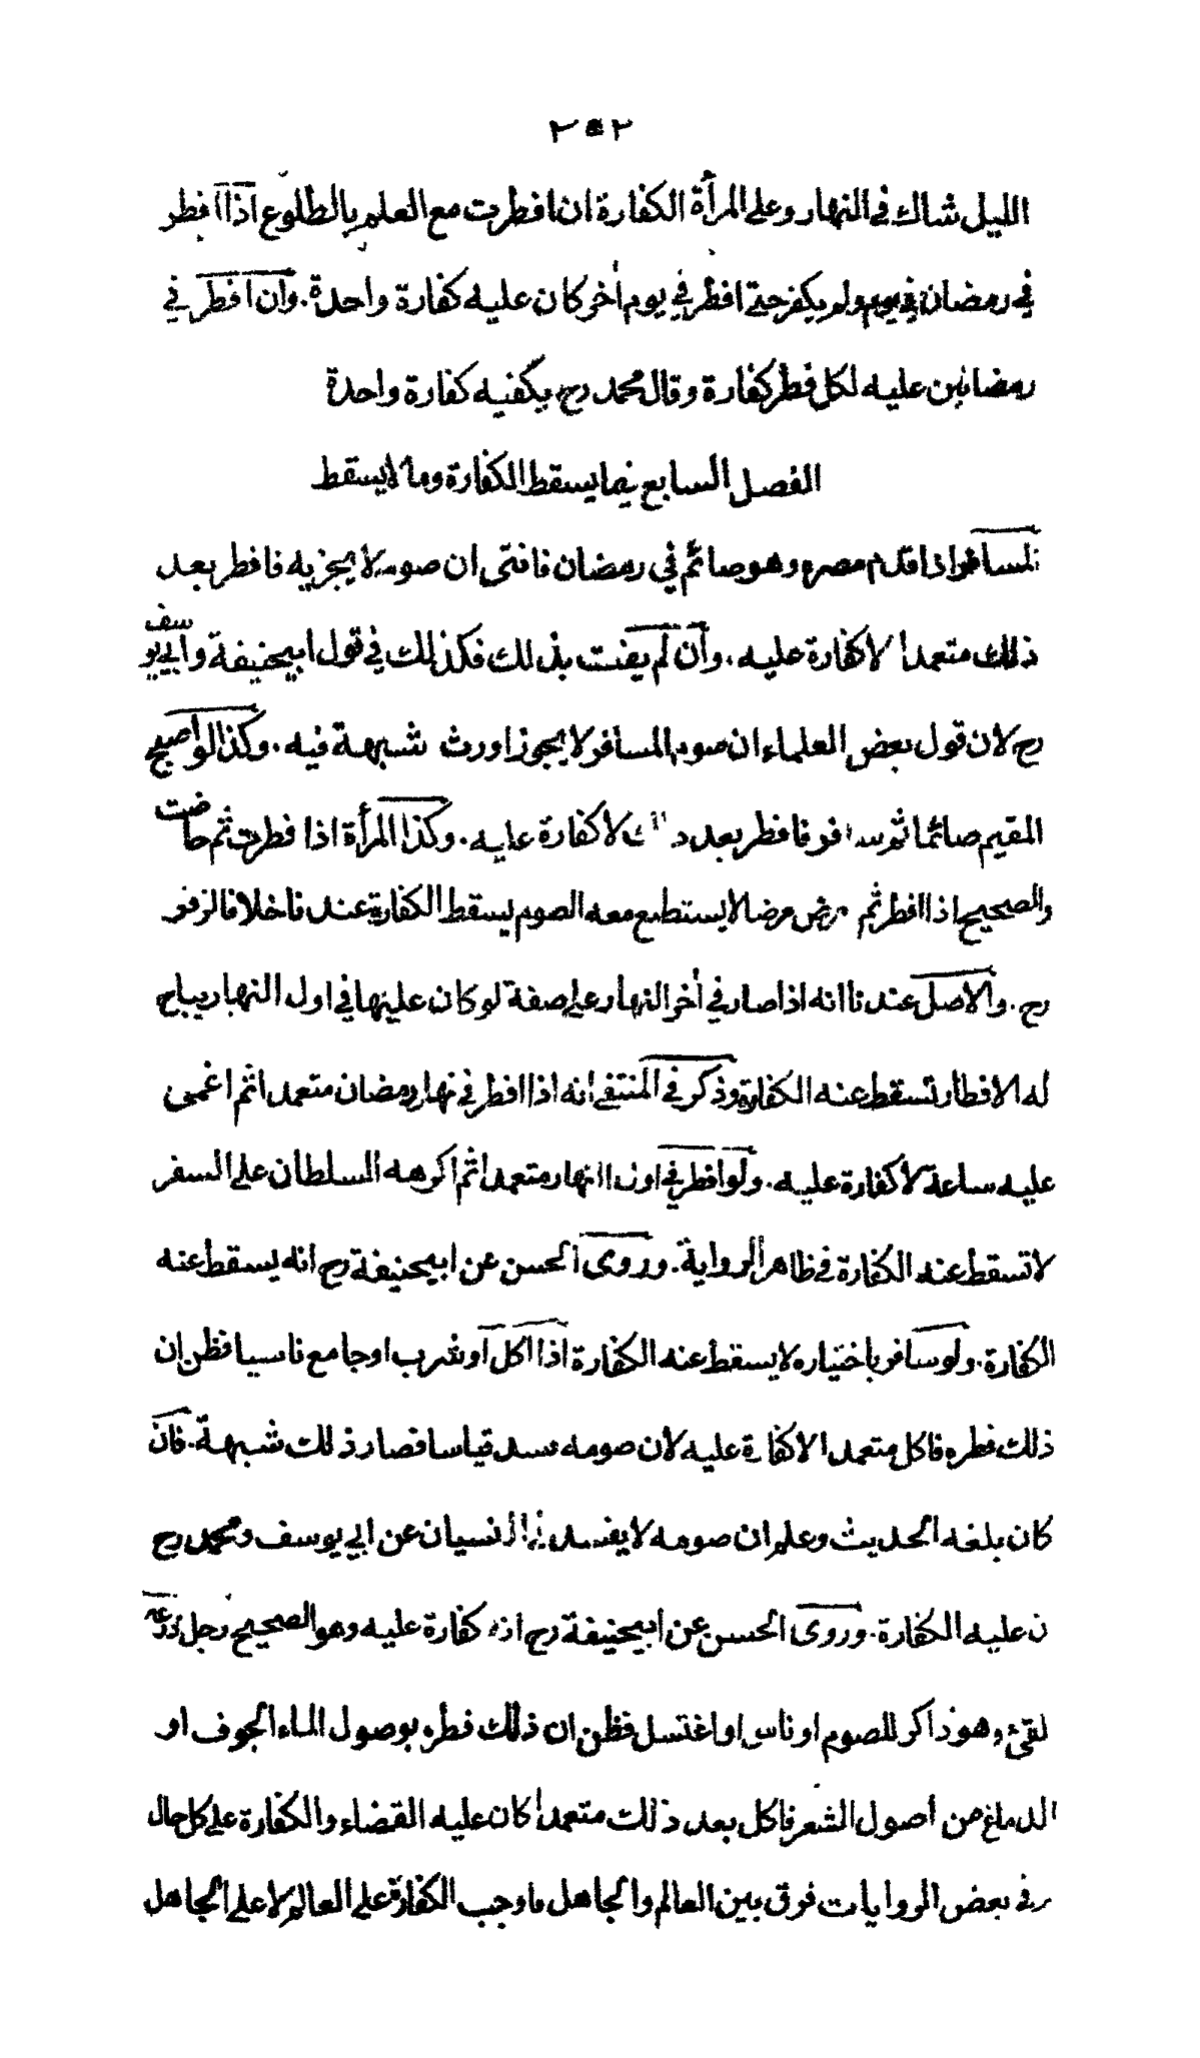 ٢٥٢
الليل شاك في النهار وعلى المرأة الكفارة ان افطرت مع العلم بالطلوع اذا افطر
في رمضان في يوم ولم يكفر حتى افطر في يوم أخر كان عليه كفارة واحدة . وان افطر في
رمضانين عليه لكل فطر كفارة وقال محمد رح يكفيه كفارة واحدة
الفصل السابع فيما يسقط الكفارة وما لا يسقط
المسافر اذا قدم مصره وهو صائم في رمضان فافتى ان صومه لا يجزيه فافطر بعد
ذلك متعمدا لا كفارة عليه . وان لم يفت بذلك فكذلك في قول ابيحنيفة وابي يوسف
رح لان قول بعض العلماء ان صوم المسافر لا يجوز اورث شبهة فيه . وكذا لو اصبح
المقيم صائما ثم سافر فافطر بعد ذلك لا كفارة عليه . وكذا المرأة اذا افطرت ثم حاضت
والصحيح اذا افطر ثم مرض مرضا لا يستطيع معه الصوم يسقط الكفارة عندنا خلافا لزفر
رح . والاصل عندنا انه اذا صار في أخر النهار على صفة لو كان عليها في اول النهار يباح
له الافطار تسقط عنه الكفارة وذكر في المنتقى انه اذا افطر في نهار رمضان متعمدا ثم اغمى
عليه ساعة لا كفارة عليه . ولو افطر في اول النهار متعمدا ثم اكرهه السلطان على السفر
لا تسقط عنه الكفارة في ظاهر الرواية . وروى الحسن عن ابيحنيفة رح انه يسقط عنه
الكفارة . ولو سافر باختياره لا يسقط عنه الكفارة اذا اكل او شرب او جامع ناسيا فظن ان
ذلك فطره فاكل متعمدا لا كفارة عليه لان صومه فسد قياسا فصار ذلك شبهة . فان
كان بلغه الحديث وعلم ان صومه لا يفسد بالنسيان عن ابي يوسف ومحمد رح
ن عليه الكفارة . وروى الحسن عن ابيحنيفة رح انه كفارة عليه وهو الصحيح رجل ذرعه
لقئ وهو ذاكر للصوم او ناس او اغتسل فظن ان ذلك فطره بوصول الماء الجوف او
الدماغ من أصول الشعر فاكل بعد ذلك متعمدا كان عليه القضاء والكفارة على كل حال
وفي بعض الروايات فرق بين العالم والجاهل فاوجب الكفارة على العالم لا على الجاهل